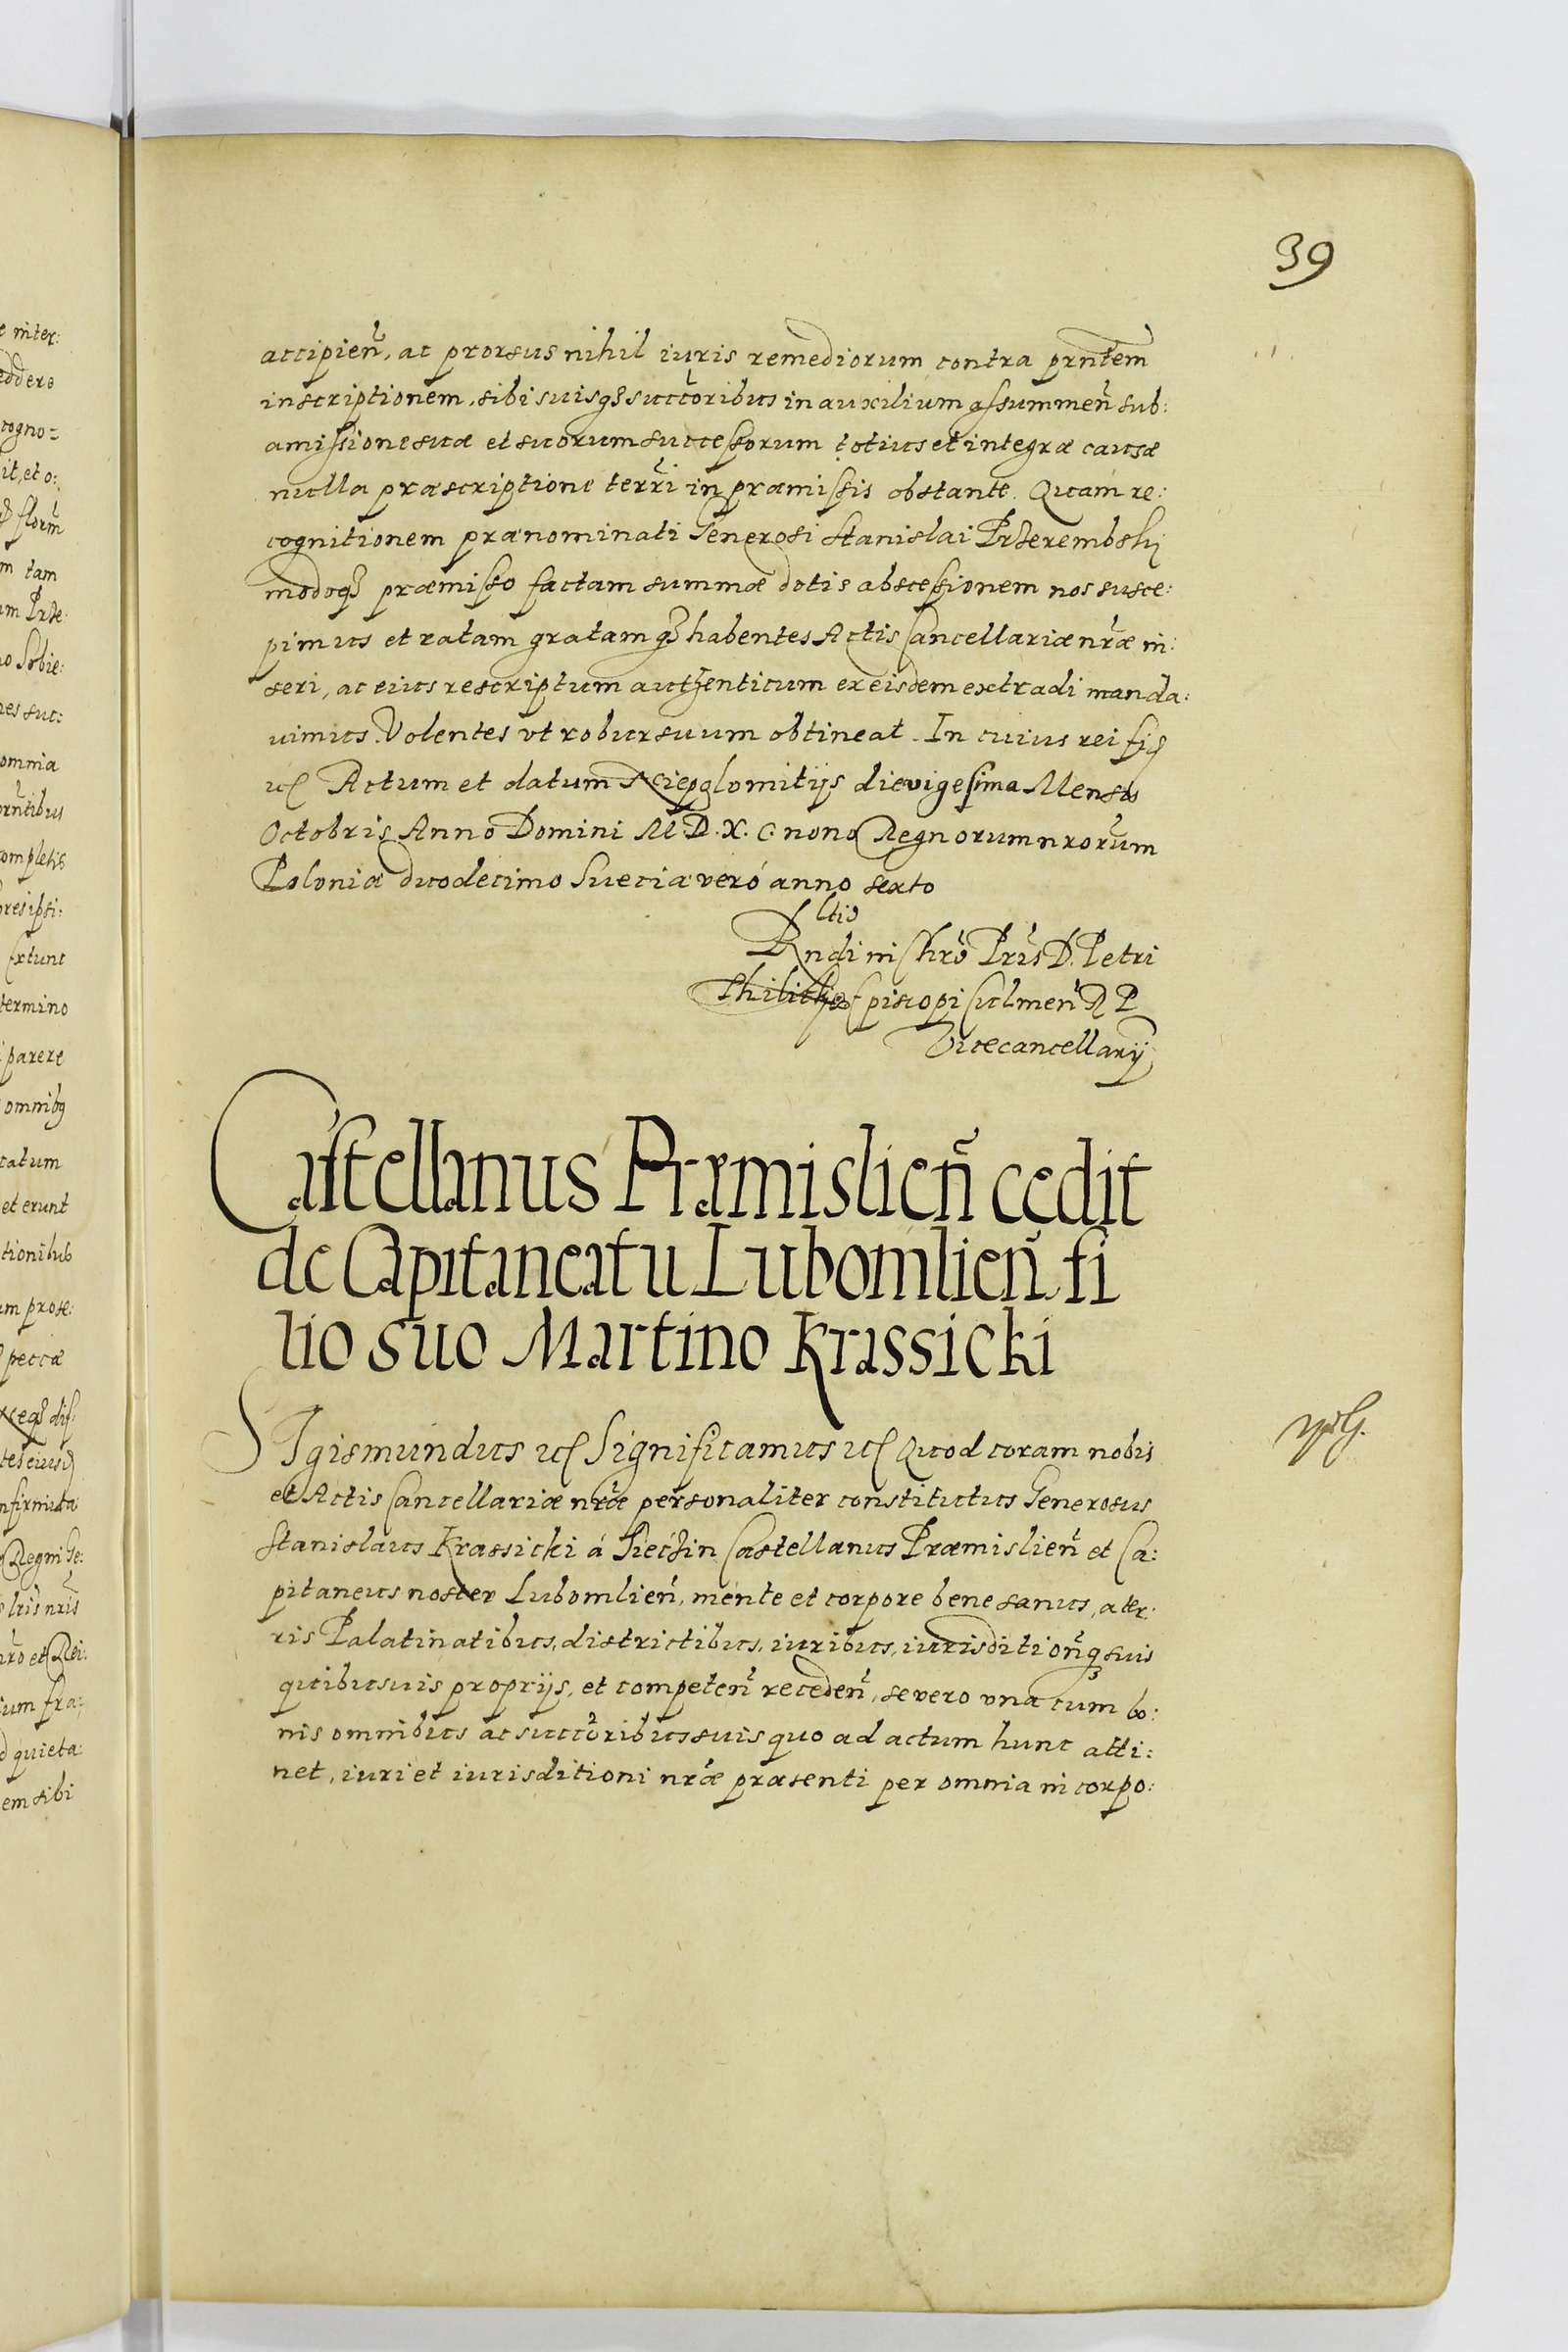 39
accipien̄, ac prorsus nihil iuris remediorum contra prn̄tem
inscriptionem, sibi suisq₃ succ̄oribus in auxilium assummen̄ sub:
amissione suæ et suorum successorum totius et integræ causæ
nulla præscriptione terr̄i in præmissis obstante. Quam re:
cognitionem prænominati Generosi Stanislai Przerembskij
modoq₃ præmisso factam summæ dotis abscessionem nos susce:
pimus et ratam gratamq₃ habentes Actis Cancellariæ nr̄æ in:
seri, ac eius rescriptum authenticum ex eisdem extradi manda:
uimus. Volentes vt robur suum obtineat. In cuius rei fid
etc Actum et datum die vigesima Mensis
Octobris Anno Domini M.D.X.C. nono Regnorum nrorūm
Poloniæ duodecimo Sueciæ veró anno sexto
Rltio
Rndi in Chrō Pris̄ D. Petri
Tÿlicki Episcopi Culmen̄ R P
Vicecancellarij
Castellanus Præmislien̄ cedit
de Capitaneatu Lubomlien̄ fi
lio suo Martino Krassicki
SIgismundus etc Significamus etc Quod coram nobis
et Actis Cancellariæ nr̄æ personaliter constitutus Generosus
Stanislaus Krassicki á Sieczin Castellanus Præmislien̄ et Ca:
pitaneus noster Lubomlien̄, mente et corpore bene sanus, a ter:
ris Palatinatibus, districtibus, iuribus, iurisdition̄q₃ suis
quibusuis proprijs, et competen̄ receden̄, se vero vna cum bo:
nis omnibus ac succ̄oribus suis quo ad actum hunc atti:
net, iuri et iurisditioni nr̄æ præsenti per omnia incorpo: